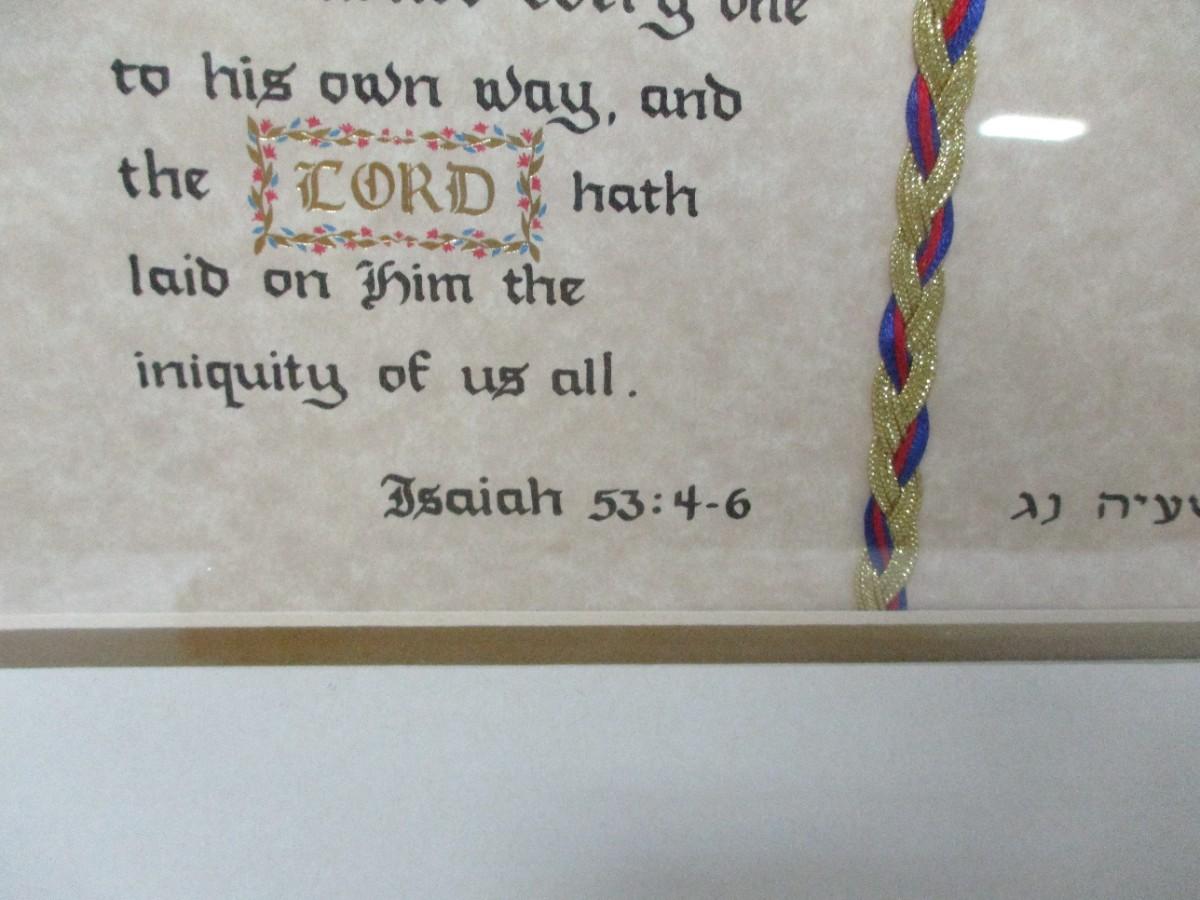 every one
to his own way, and
the LORD hath
laid on Him the
iniquity of us all.
Isaiah 53:4-6
נג